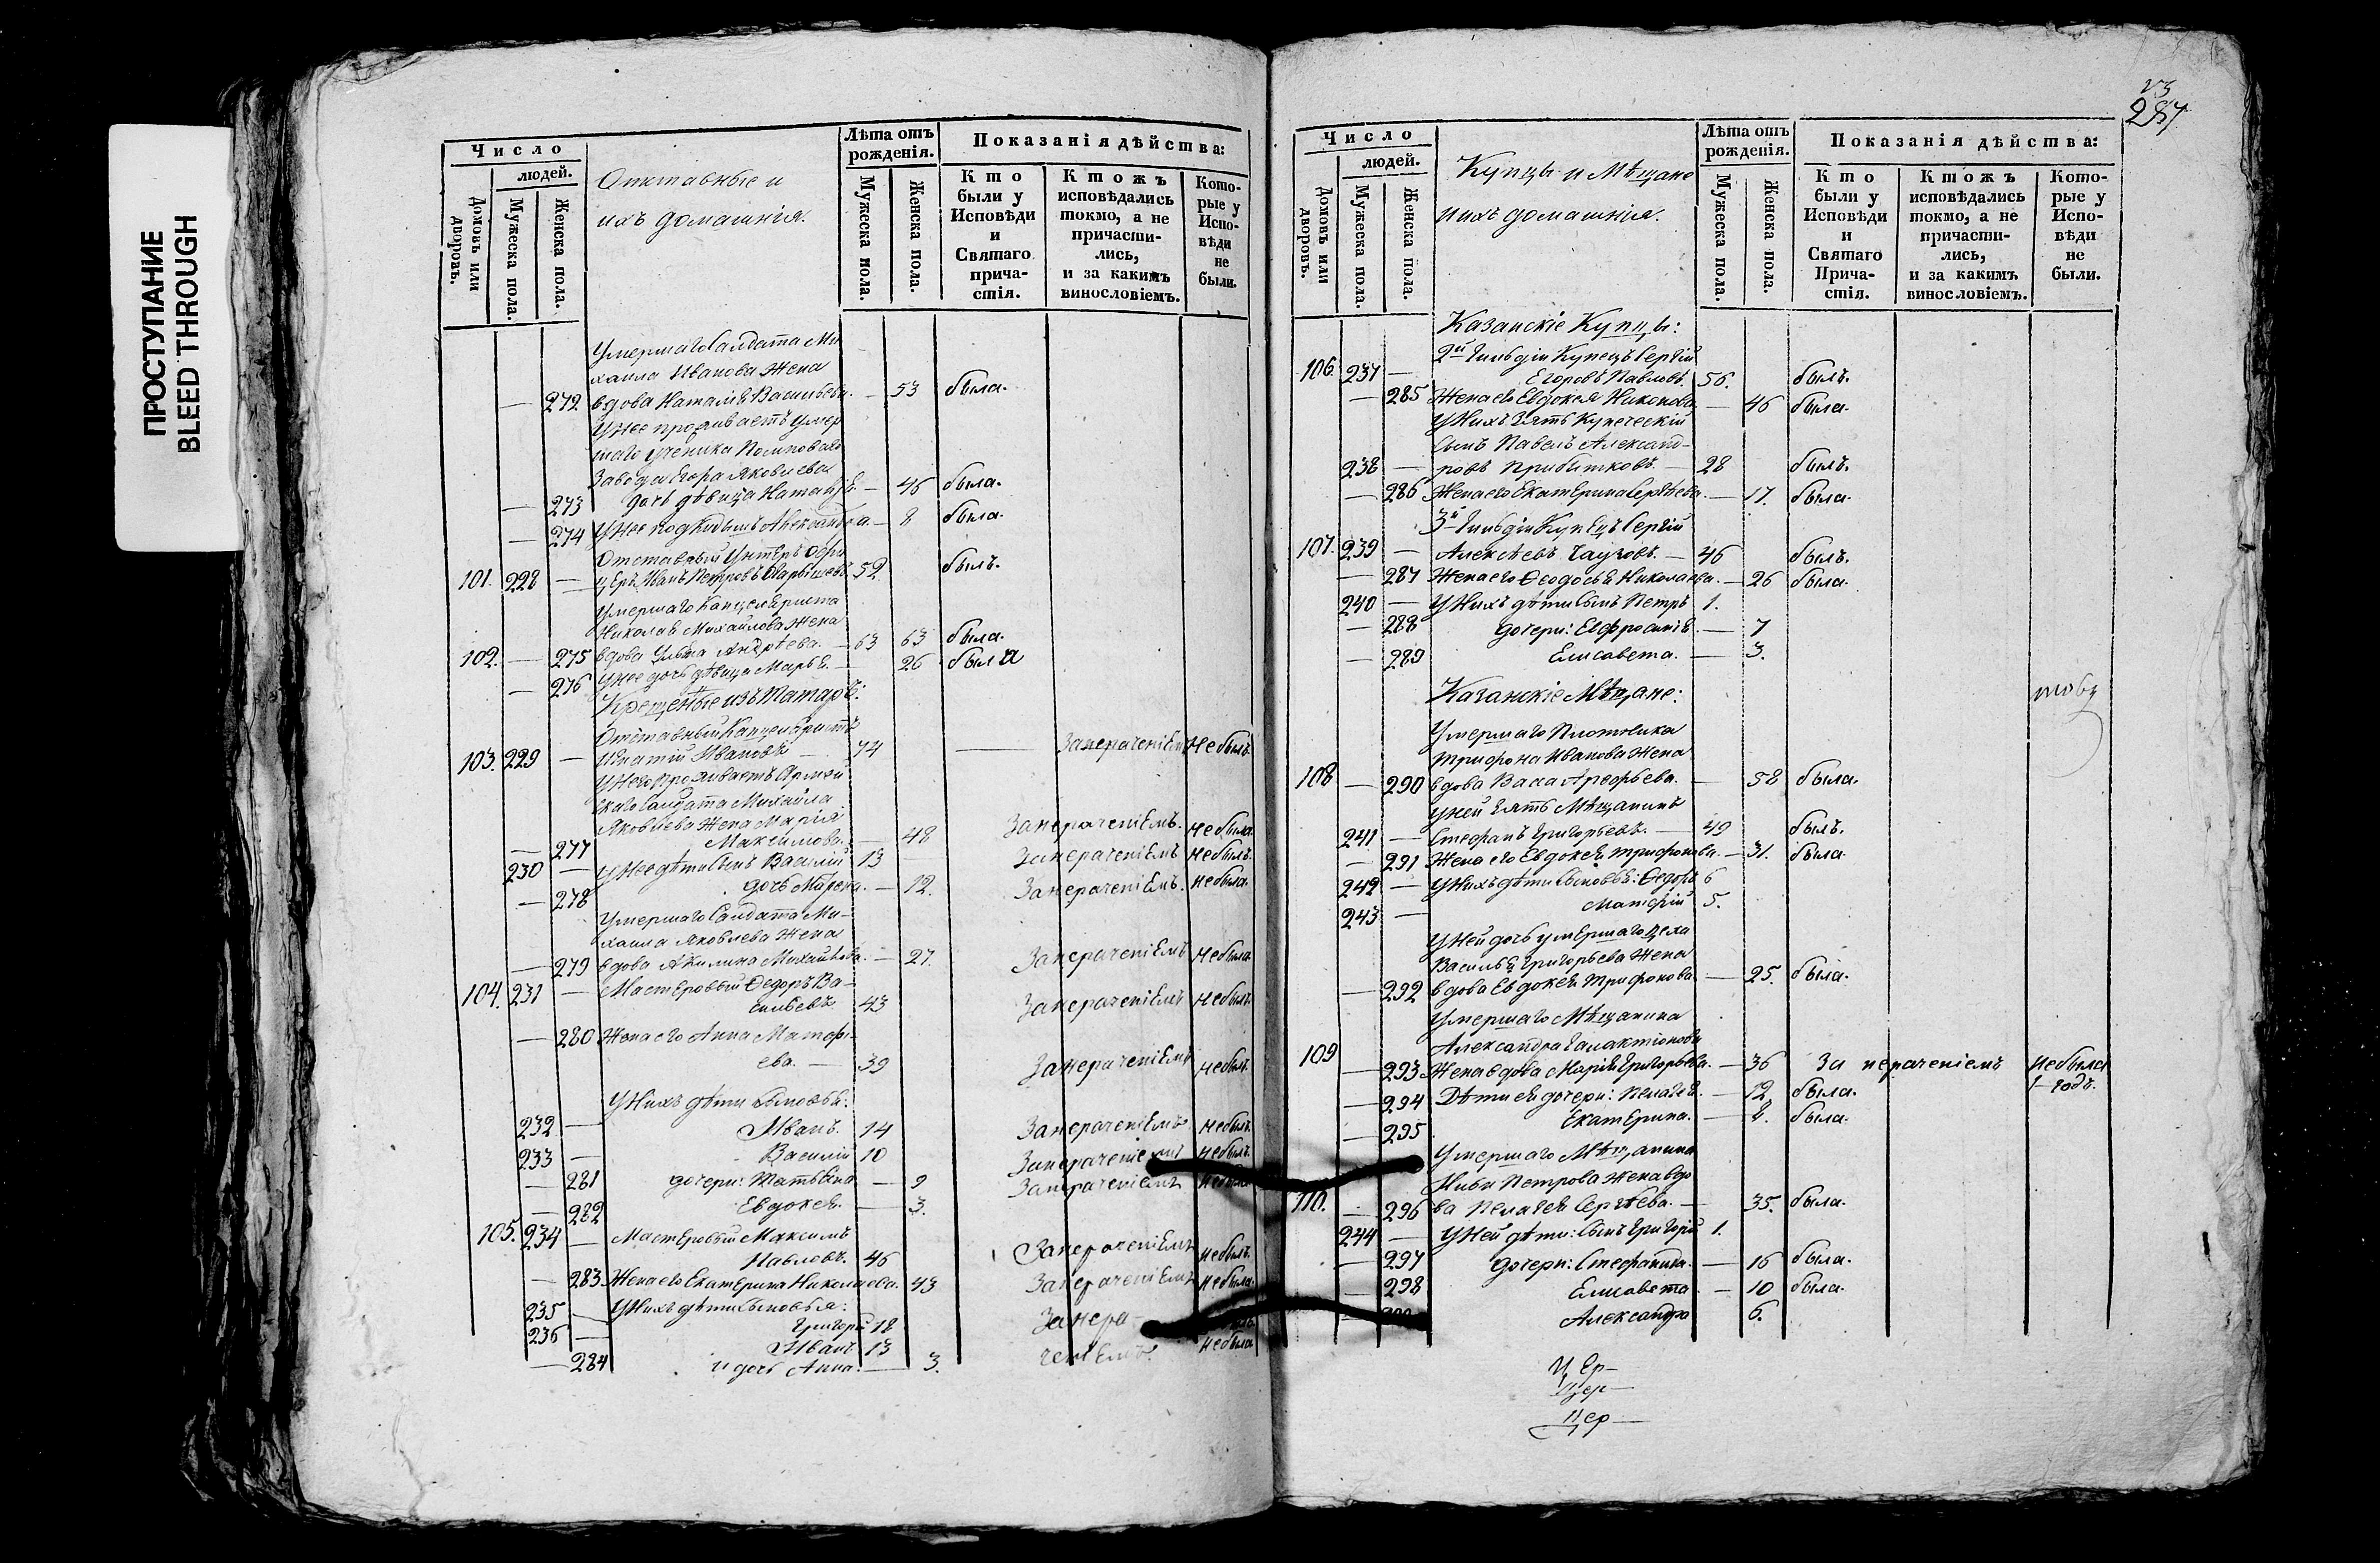 ПРОСТУПАНИЕ
BLEED THROUGH
Число
людей.
Домовъ или дворовъ.
Мужеска пола.
Женска пола.
Отставные и
ихъ домашнія.
Лѣта отъ рожденія.
Мужеска пола.
Женска пола.
Показанія дѣйства:
Кто были у Исповѣди и Святаго причастія.
Ктожъ исповѣдались токмо, а не причастились, и за какимъ винословіемъ.
Которые у Исповѣди не были.
Умершаго Солдата Ми
хаила Иванова Жена
— 272 вдова Наталія Васильева. — 53 была.
У нее проживаетъ умер
шаго ученика
Завода Егора Яковлева
— 273 дочь дѣвица — 46 была.
— 274 У нее подкидышъ Александра — 8 была.
Отставный Унтеръ Офи
101. 228 — церъ Иванъ Петровъ 52. былъ.
Умершаго Канцеляриста
Николая Михайлова Жена
102. — 275 вдова Андрѣева. — 63 63 была.
— 276 У нее дочь дѣвица Марья. — 26 была
Крещеные изъ Татаръ:
Отставный Канцеляристъ
103. 229 — Игнатій Ивановъ — 74 — За нераченіемъ Не былъ.
У него проживаетъ Армей
скаго Солдата Михайла
Яковлева Жена Марія
— 277 Максимова. — 48 За нераченіемъ. не была
230 — У нее дѣти сынъ Василій 13 За нераченіемъ не былъ.
— 278 дочь — 12. За нераченіемъ. не была
Умершаго Солдата Ми-
хаила Яковлева Жена
— 279 вдова Акилина Михайлова. — 27. За нераченіемъ не была
104. 231 — Мастеровый Ѳедоръ Ва-
сильевъ. 43 За нераченіемъ не былъ.
— 280 Жена его Анна Матфі-
ева. — 39 За нераченіемъ не был.
У нихъ дѣти сыновья:
232 — Иванъ. 14 За нераченіемъ не былъ.
233 — Василій 10 За нераченіемъ не былъ.
— 281 дочери: Татьяна — 9 За нераченіемъ не была
— 282 Евдокея. — 3.
105. 234 — Мастеровый Максимъ
Павловъ. 46 За нераченіемъ не былъ.
— 283 Жена его Екатерина Николаева. 43 За нераченіемъ не была.
235 — У нихъ дѣти сыновья:
236 — Григорій 18 За нера-
Иванъ 13
— 284 и дочь Анна. — 3. ченіемъ. не была
23
287
Число
людей.
Домовъ или дворовъ.
Мужеска пола.
Женска пола.
Купцы и Мѣщане
и ихъ домашнія.
Лѣта отъ рожденія.
Мужеска пола.
Женска пола.
Показанія дѣйства:
Кто были у Исповѣди и Святаго Причастія.
Ктожъ исповѣдались токмо, а не причастились, и за какимъ винословіемъ.
Которые у Исповѣди не были.
Казанскіе Купцы:
2й Гильдіи Купецъ Сергій
106. 237 — Егоровъ Павловъ. 56. былъ.
— 285 Жена его Евдокея Никонова — 46 была.
У нихъ зять Купеческій
сынъ Павелъ Александ-
238 — ровъ Прибытковъ. — 28 былъ.
— 286 Жена его Екатерина Сергѣева. — 17. была.
3й Гильдіи Купецъ Сергій
107. 239 — Алексѣевъ — 46 былъ.
— 287 Жена его Ѳеодосья Николаева. — 26 была.
240 — У нихъ дѣти сынъ Петръ 1.
— 288 дочери: Евфросинія — 7
— 289 Елисавета. — 3.
Казанскіе Мѣщане:
Умершаго Плотника
Трифона Иванова Жена
108 — 290 вдова Васса Арефьева. — 58 была.
У ней зять Мѣщанинъ
241 — Стефанъ Григорьевъ. — 49 былъ.
— 291 Жена его Евдокея Трифонова. — 31. была.
242 — У нихъ дѣти сыновья: Ѳедоръ 6
243 — Матфій 5.
У ней дочь умершаго цеха
Василья Григорьева Жена
— 292 вдова Евдокея Трифонова — 25. была.
Умершаго Мѣщанина
Александра Галактіонова
109 — 293 Жена вдова Марія Григорьева. — 36 За нераченіемъ Не была
1 годъ.
— 294 Дѣти ея дочери: Пелагея. — 12 была.
— 295 Екатерина. — 8. была.
Умершаго Мѣщанина
Петрова Жена вдо
110. — 296 ва Пелагея Сергѣева. — 35. была.
244 — У ней дѣти: сынъ Григорій 1.
— 297 дочери: Стефанида. — 16 была.
— 298 Елисавета — 10 была.
Александра 6.
Цер—
Цер—
Цер—